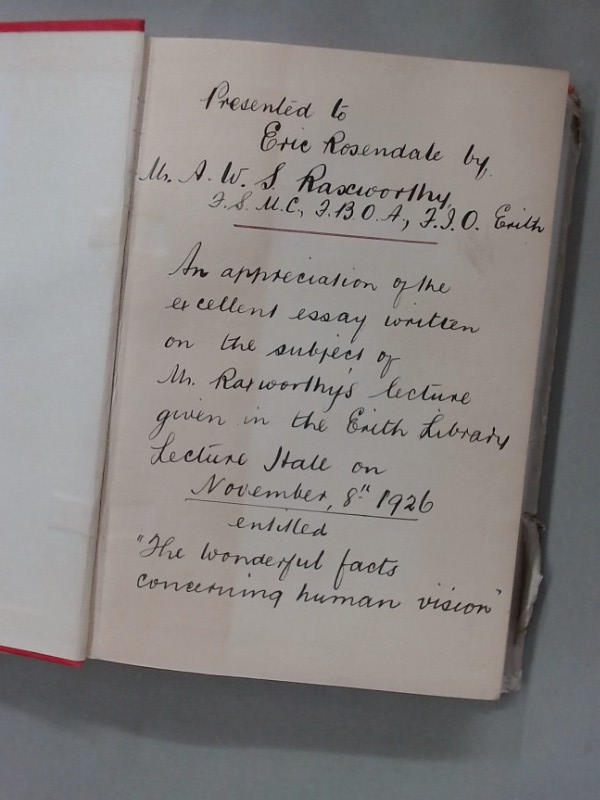 Presented to
Eric Rosendale by
Mr. A. W. S. Raxworthy,
F.S.M.C., F.B.O.A., F.I.O. Erith
An appreciation of the
excellent essay written
on the subject of
Mr. Raxworthy's lecture
given in the Erith Library
Lecture Hall on
November, 8th 1926
entitled
"The wonderful facts
concerning human vision"